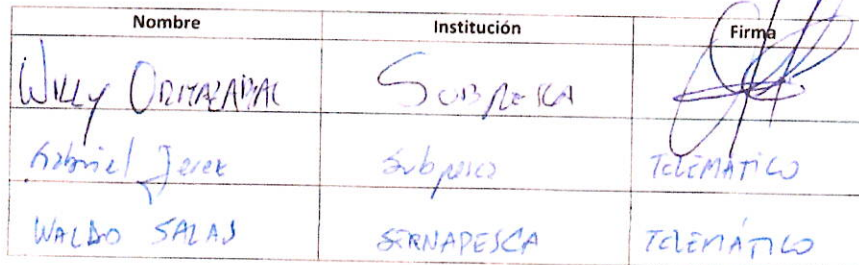 Nombre Institución Firma
WILLY SUBPESCA
Gabriel Jerez Subpesca TELEMÁTICO
WALDO SALAS SERNAPESCA TELEMÁTICO